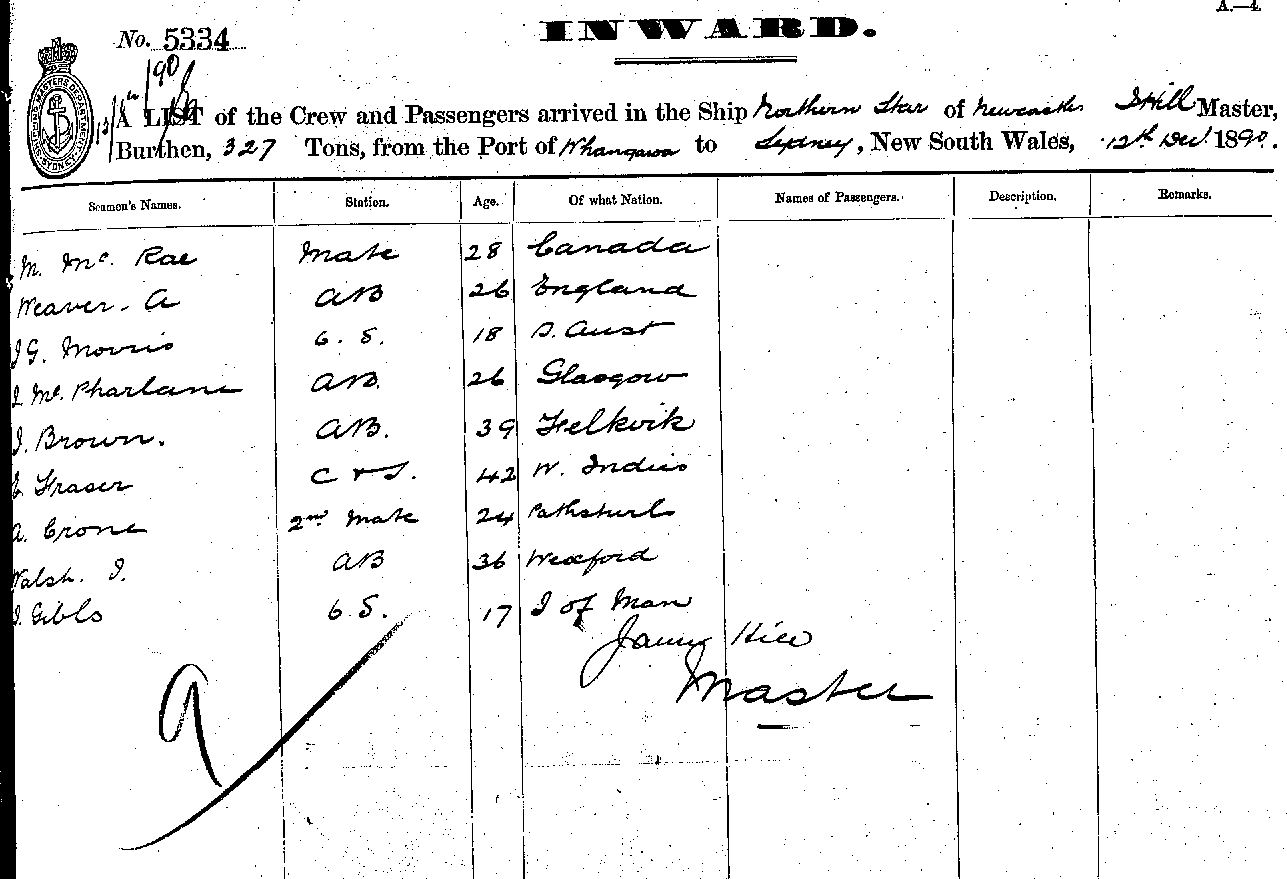 A.—4.
INWARD.
No. 5334
A LIST of the Crew and Passengers arrived in the Ship Northern Star of Newcastle J Hill Master,
Burthen, 327 Tons, from the Port of Whangaroa to Sydney, New South Wales, 12th Dec. 1890.
Seamen's Names. Station. Age. Of what Nation. Names of Passengers. Description. Remarks.
M. Mc. Rae Mate 28 Canada
Weaver. A AB 26 England
J G. Morris O. S. 18 S. Aust
J Mc. Pharlane AB. 26 Glasgow
J. Brown. AB. 39
E Fraser C & S. 42 W. Indies
A. Crone 2nd Mate 24
Walsh. J. AB 36 Wexford
J. Gibbs O.S. 17 I of Man
James Hill
Master
9